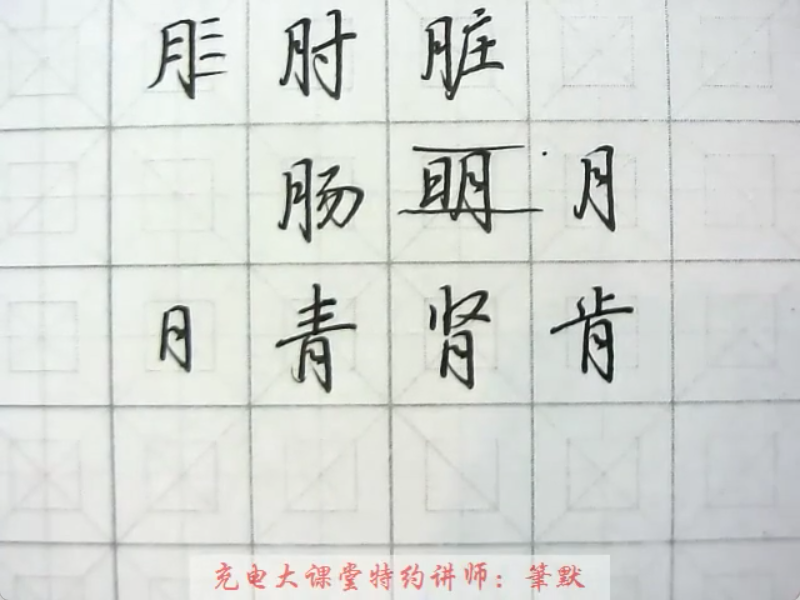 肜 肘 脏
肠 明 月
月 青 肾 肯
充电大课堂特约讲师：筆默